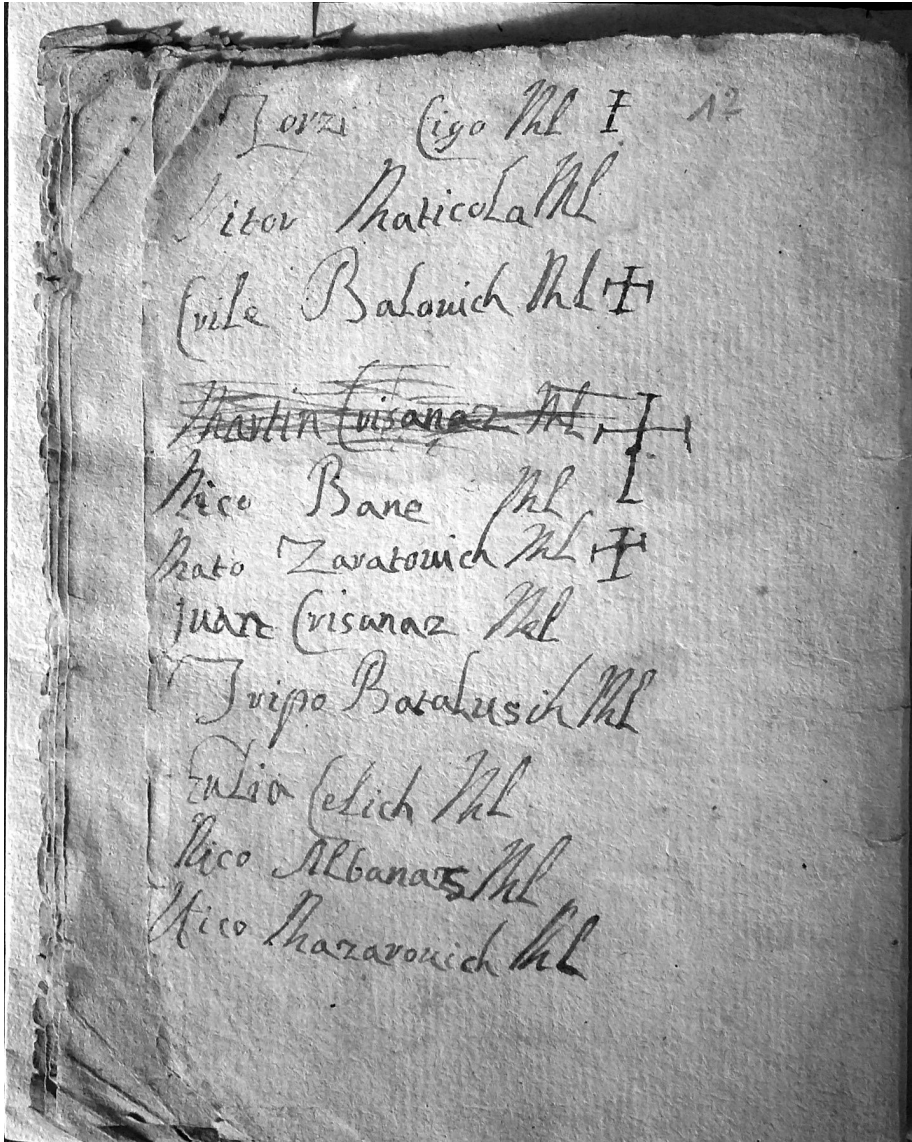 Zorzi Cigo Ml ‡ 12
Vitor Maticola Ml
Crile Balouich Ml ‡
Martin Crisanaz Ml ‡
Nico Bane Ml
Mato Zaratouich Ml ‡
Juan Crisanaz Ml
Tripo Batalusih Ml
Celich Ml
Nico Albanaz Ml
Nico Mazarouich Ml